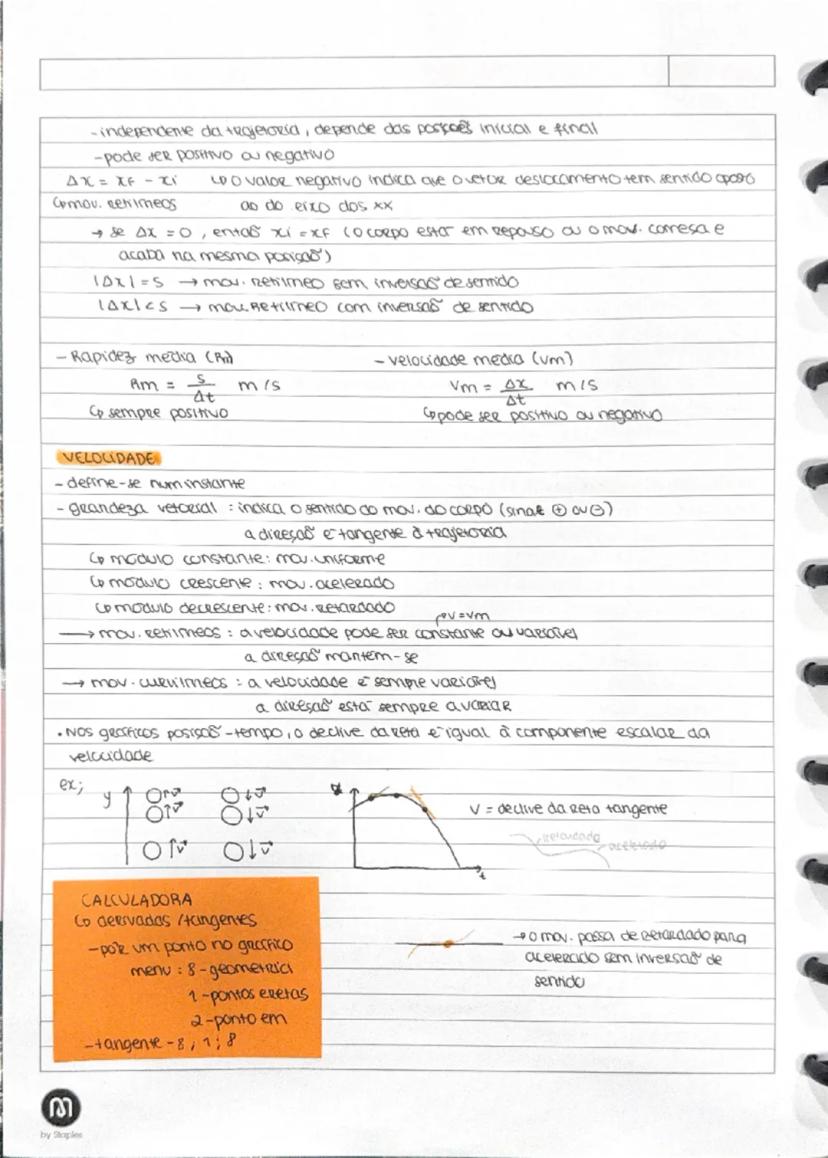 - independente da trajetória, depende das posições inicial e final
- pode ser positivo ou negativo
Δx = xf - xi ↳ o valor negativo indica que o vetor deslocamento tem sentido oposto
↳ mov. retilíneos ao do eixo dos xx
→ se Δx = 0, então xi = xf (o corpo está em repouso ou o mov. começa e
acaba na mesma posição)
|Δx| = s → mov. retilíneo sem inversão de sentido
|Δx| < s → mov. Retilíneo com inversão de sentido
- Rapidez média (Rm) - velocidade média (vm)
Rm = s/Δt m/s Vm = Δx/Δt m/s
↳ sempre positivo ↳ pode ser positivo ou negativo
VELOCIDADE
- define-se num instante
- grandeza vetorial : indica o sentido do mov. do corpo (sinal ⊕ ou ⊖)
a direção é tangente à trajetória
↳ módulo constante: mov. uniforme
↳ módulo crescente: mov. acelerado
↳ módulo decrescente: mov. retardado
↱ v = vm
→ mov. retilíneos : a velocidade pode ser constante ou variável
a direção mantém-se
→ mov. curvilíneos : a velocidade é sempre variável
a direção está sempre a variar
• Nos gráficos posição-tempo, o declive da reta é igual à componente escalar da
velocidade
ex;
y ↑v⃗ ↓v⃗
↑v⃗ ↓v⃗
↑v⃗ ↓v⃗
x
t
v = declive da reta tangente
retardado
acelerado
CALCULADORA
↳ derivadas / tangentes
- pôr um ponto no gráfico
menu : 8 - geometria
1 - pontos e retas
2 - ponto em
- tangente - 8, 1, 8
→ o mov. passa de retardado para
acelerado sem inversão de
sentido
M
by Staples